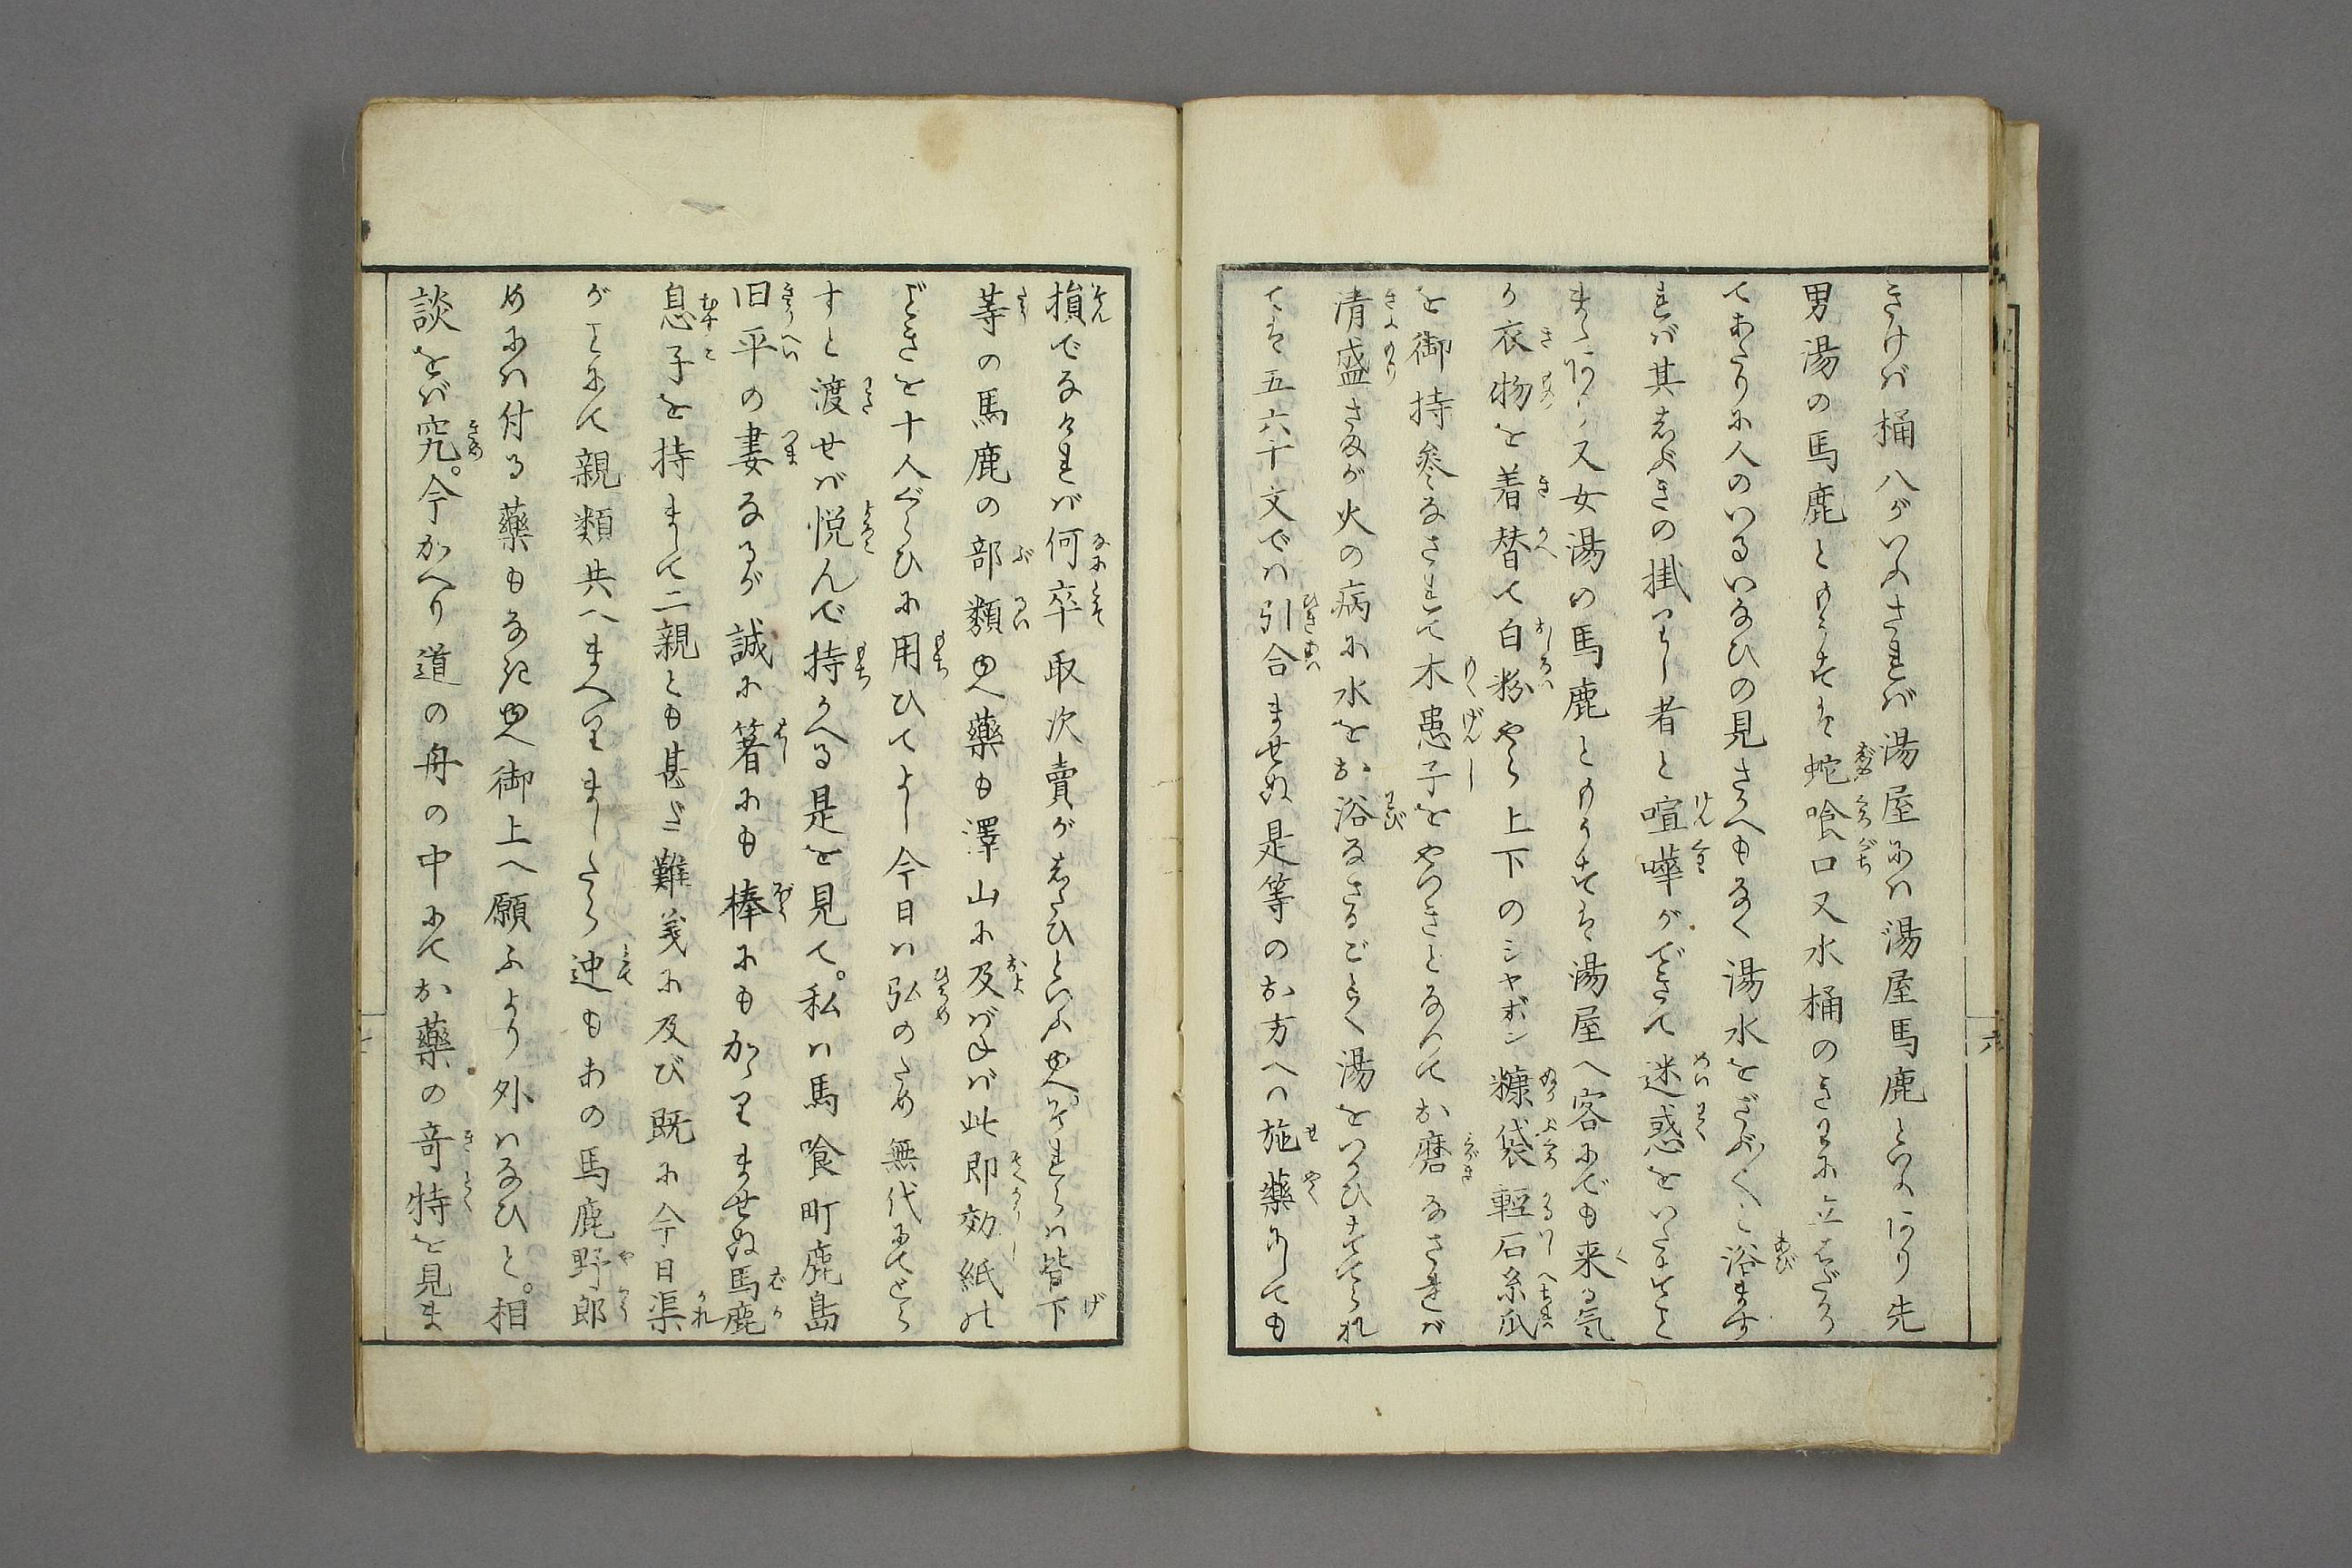 きけバ桶八がいふされバ湯屋にハ湯屋馬鹿といふあり先
男湯の馬鹿と申すは蛇喰口又水桶のきわに立はだかり
てあたりに人のいるいなひの見さへもなく湯水をざぶ〱と浴ます
れバ其志ぶきの掛りし者と喧嘩ができて迷惑をいたすこと
まゝあり又女湯の馬鹿と申すは湯屋へ客にでも来る気
か衣物を着替て白粉やら上下のシャボン糠袋軽石糸瓜
を御持参なされて木患子をやつきとなんてお磨なされバ
清盛さまが火の病に水をお浴なさるごとく湯をつかひすてられ
ては五六十文でハ引合ませぬ是等のお方へハ施薬にしても
損でなけれバ何卒取次賣が志たひといふゆへ。それらハ皆下
等の馬鹿の部類ゆへ薬も澤山に及バねバ此即効紙の
どきを十人ぐらひに用ひてよし今日ハ弘のため無代にてとら
すと渡せバ悦んで持かへる是を見て。私ハ馬喰町鹿島
旧平の妻なるが誠に箸にも棒にもかゝりませぬ馬鹿
息子を持まして二親とも甚だ難義に及び既に今日渠
がことにて親類共へまへりましたら迚もあの馬鹿野郎
めにハ付る薬もなきゆへ御上へ願ふより外ハなひと。相
談をバ究。今かへり道の舟の中にてお薬の竒特を見ま
六